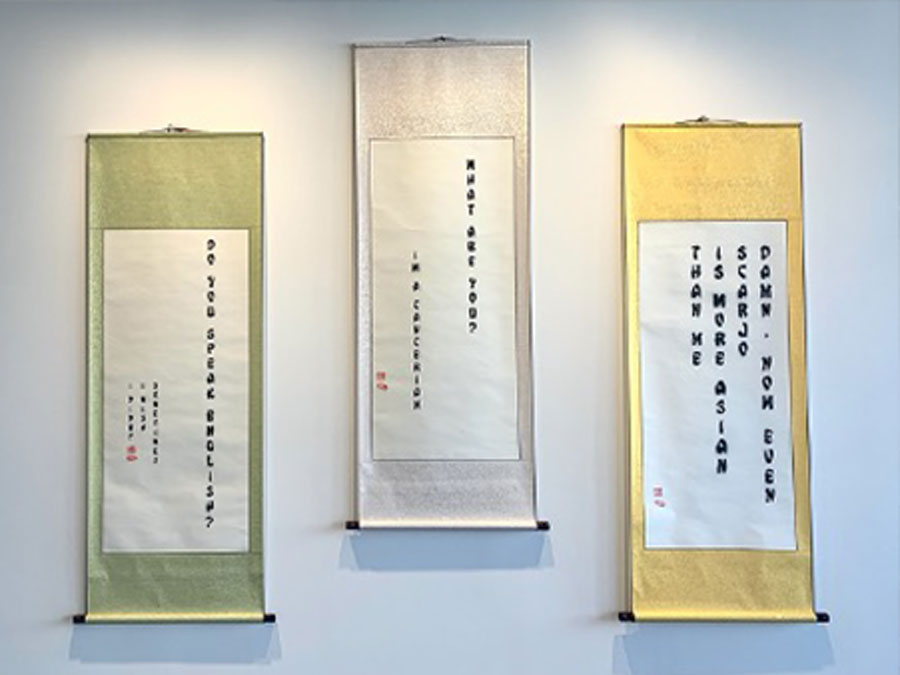 DO YOU SPEAK ENGLISH?
SOMETIMES
I WISH
I DIDN'T
WHAT ARE YOU?
I'M A
DAMN. NOW EVEN
SCARJO
IS MORE ASIAN
THAN ME